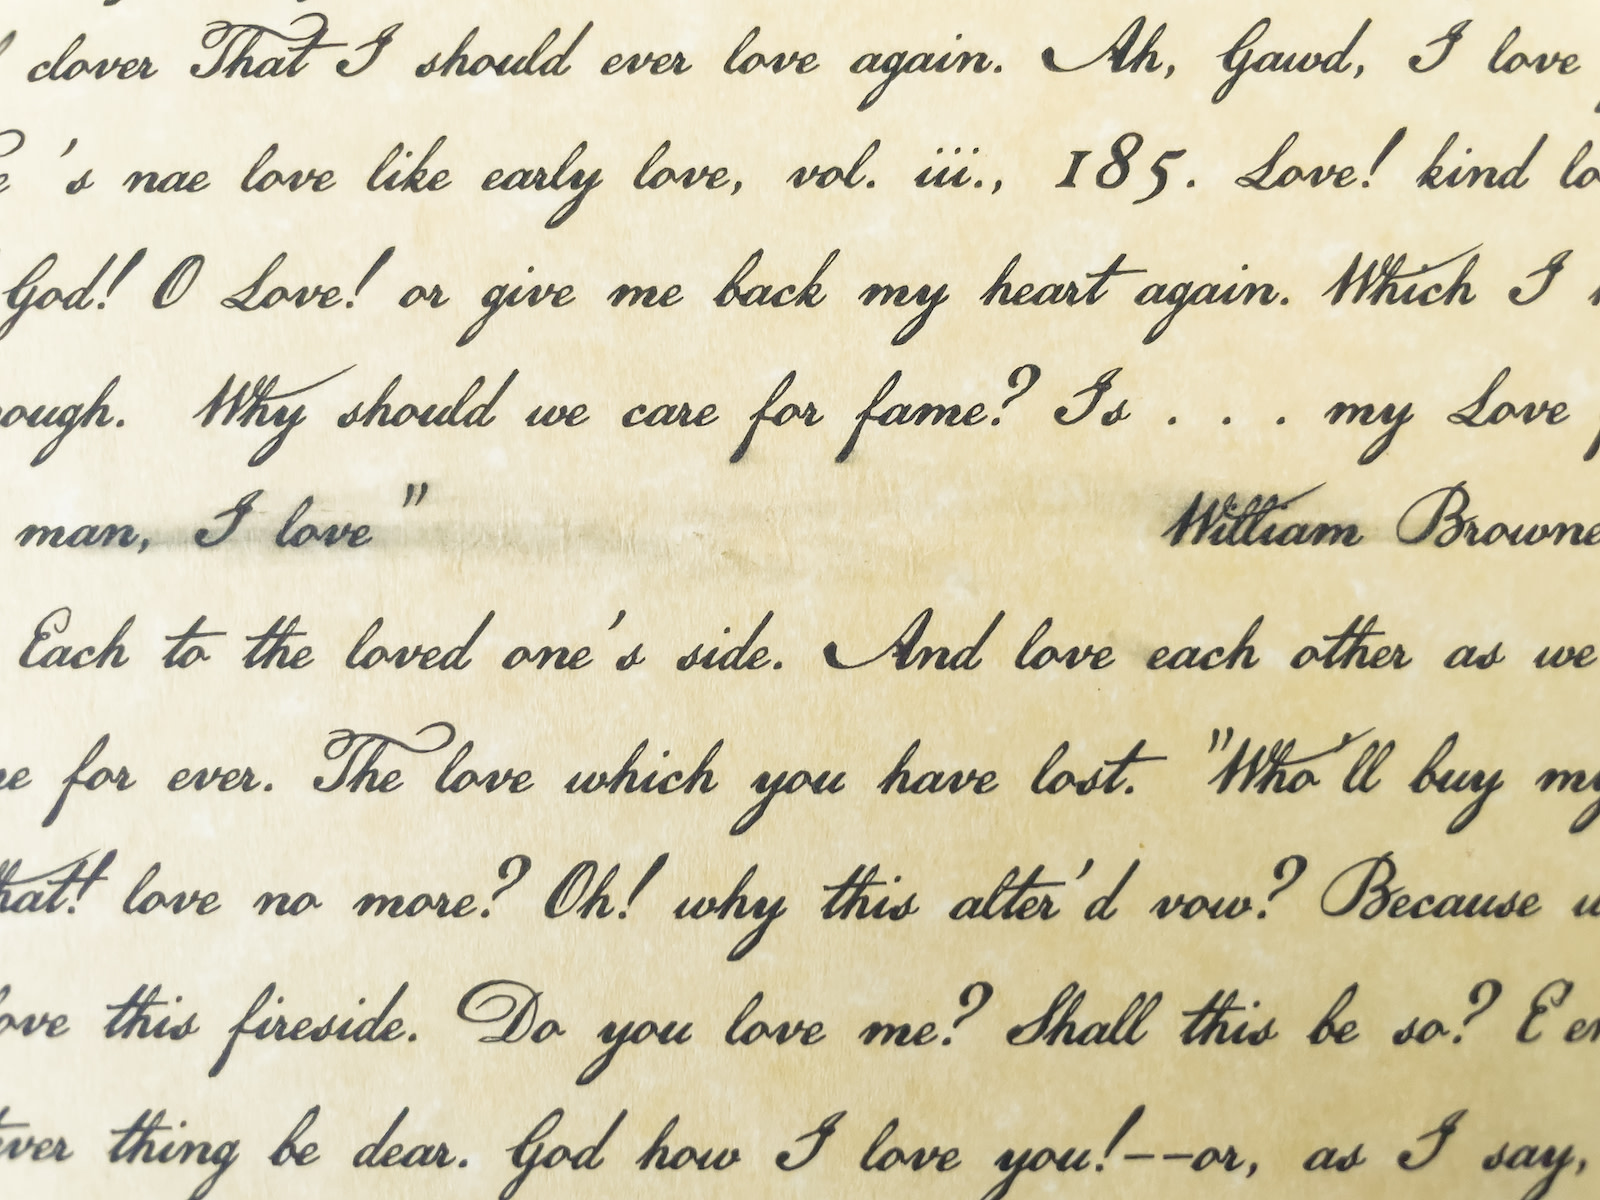 clover That I should ever love again. Ah, Gawd, I love
's nae love like early love, vol. iii., 185. Love! kind
God! O Love! or give me back my heart again. Which I
Why should we care for fame? Is . . . my Love
man, I love" William Browne
Each to the loved one's side. And love each other as we
for ever. The love which you have lost. "Who'll buy my
love no more? Oh! why this alter'd vow? Because
this fireside. Do you love me? Shall this be so? E
thing be dear. God how I love you!--or, as I say,